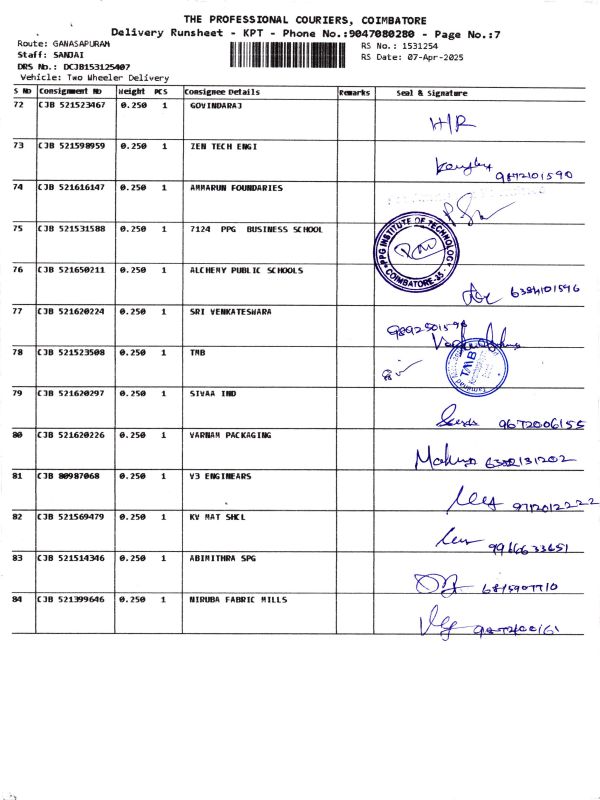 THE PROFESSIONAL COURIERS, COIMBATORE
Delivery Runsheet - KPT - Phone No.:9047080280 - Page No.:7
Route: GANASAPURAM
RS No.: 1531254
Staff: SANJAI
RS Date: 07-Apr-2025
DRS No.: DCJB153125407
Vehicle: Two Wheeler Delivery
S No Consignment No Weight PCS Consignee Details Remarks Seal & Signature
72 CJB 521523467 0.250 1 GOVINDARAJ H/R
73 CJB 521598959 0.250 1 ZEN TECH ENGI 9872101590
74 CJB 521616147 0.250 1 AMMARUN FOUNDARIES
75 CJB 521531588 0.250 1 7124 PPG BUSINESS SCHOOL
PPG INSTITUTE OF TECHNOLOGY
COIMBATORE-35
76 CJB 521650211 0.250 1 ALCHEMY PUBLIC SCHOOLS 6384101596
77 CJB 521620224 0.250 1 SRI VENKATESWARA
78 CJB 521523508 0.250 1 TMB
TMB
79 CJB 521620297 0.250 1 SIVAA IND 9672006155
80 CJB 521620226 0.250 1 VARNAM PACKAGING
81 CJB 80987068 0.250 1 V3 ENGINEARS 9712012222
82 CJB 521569479 0.250 1 KV MAT SHCL
83 CJB 521514346 0.250 1 ABIMITHRA SPG
84 CJB 521399646 0.250 1 NIRUBA FABRIC MILLS